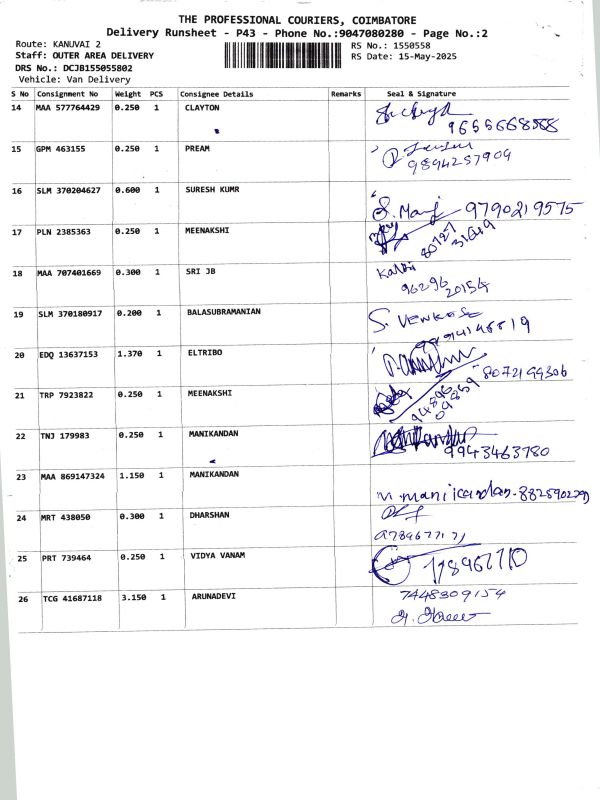 THE PROFESSIONAL COURIERS, COIMBATORE
Delivery Runsheet - P43 - Phone No.:9047080280 - Page No.:2
Route: KANUVAI 2 RS No.: 1550558
Staff: OUTER AREA DELIVERY RS Date: 15-May-2025
DRS No.: DCJB155055802
Vehicle: Van Delivery
S No Consignment No Weight PCS Consignee Details Remarks Seal & Signature
14 MAA 577764429 0.250 1 CLAYTON
15 GPM 463155 0.250 1 PREAM
9894257909
16 SLM 370204627 0.600 1 SURESH KUMR
S. Mani 9790219575
17 PLN 2385363 0.250 1 MEENAKSHI
18 MAA 707401669 0.300 1 SRI JB
96296
20154
19 SLM 370180917 0.200 1 BALASUBRAMANIAN
S. VENKASE
20 EDQ 13637153 1.370 1 ELTRIBO
8072199306
21 TRP 7923822 0.250 1 MEENAKSHI
22 TNJ 179983 0.250 1 MANIKANDAN
9943463780
23 MAA 869147324 1.150 1 MANIKANDAN
24 MRT 438050 0.300 1 DHARSHAN
25 PRT 739464 0.250 1 VIDYA VANAM
26 TCG 41687118 3.150 1 ARUNADEVI
7448309154